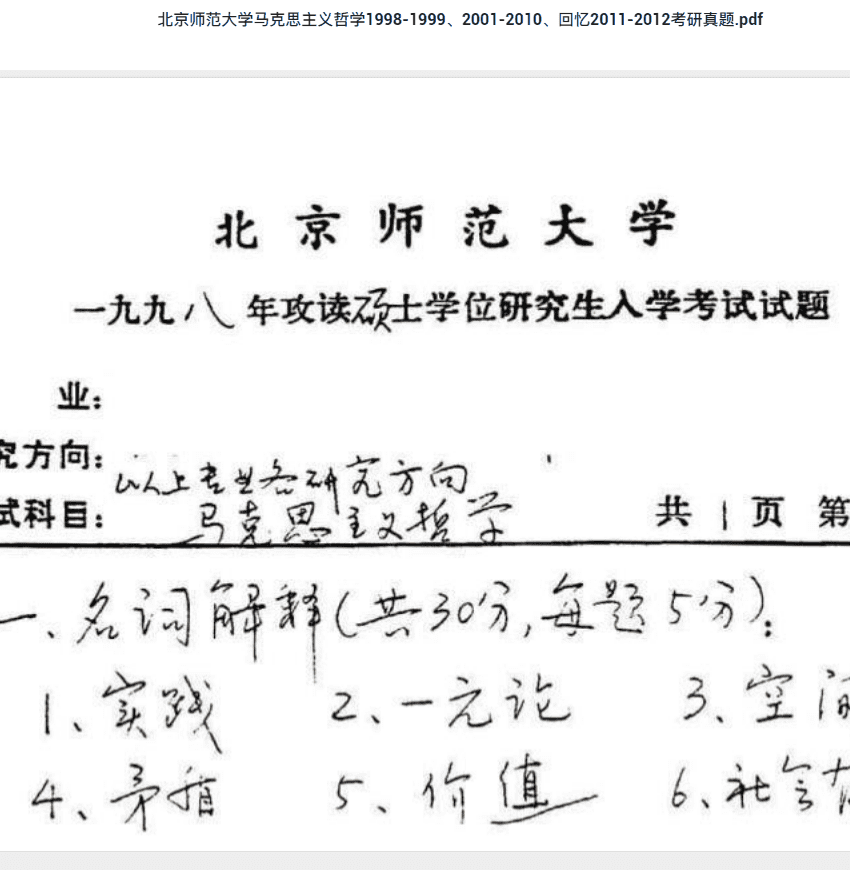 北京师范大学马克思主义哲学1998-1999、2001-2010、回忆2011-2012考研真题.pdf
北京师范大学
一九九八年攻读硕士学位研究生入学考试试题
业:
究方向: 以上专业各研究方向
试科目: 马克思主义哲学 共1页 第
一、名词解释(共30分,每题5分):
1、实践 2、一元论 3、空间
4、矛盾 5、价值 6、社会